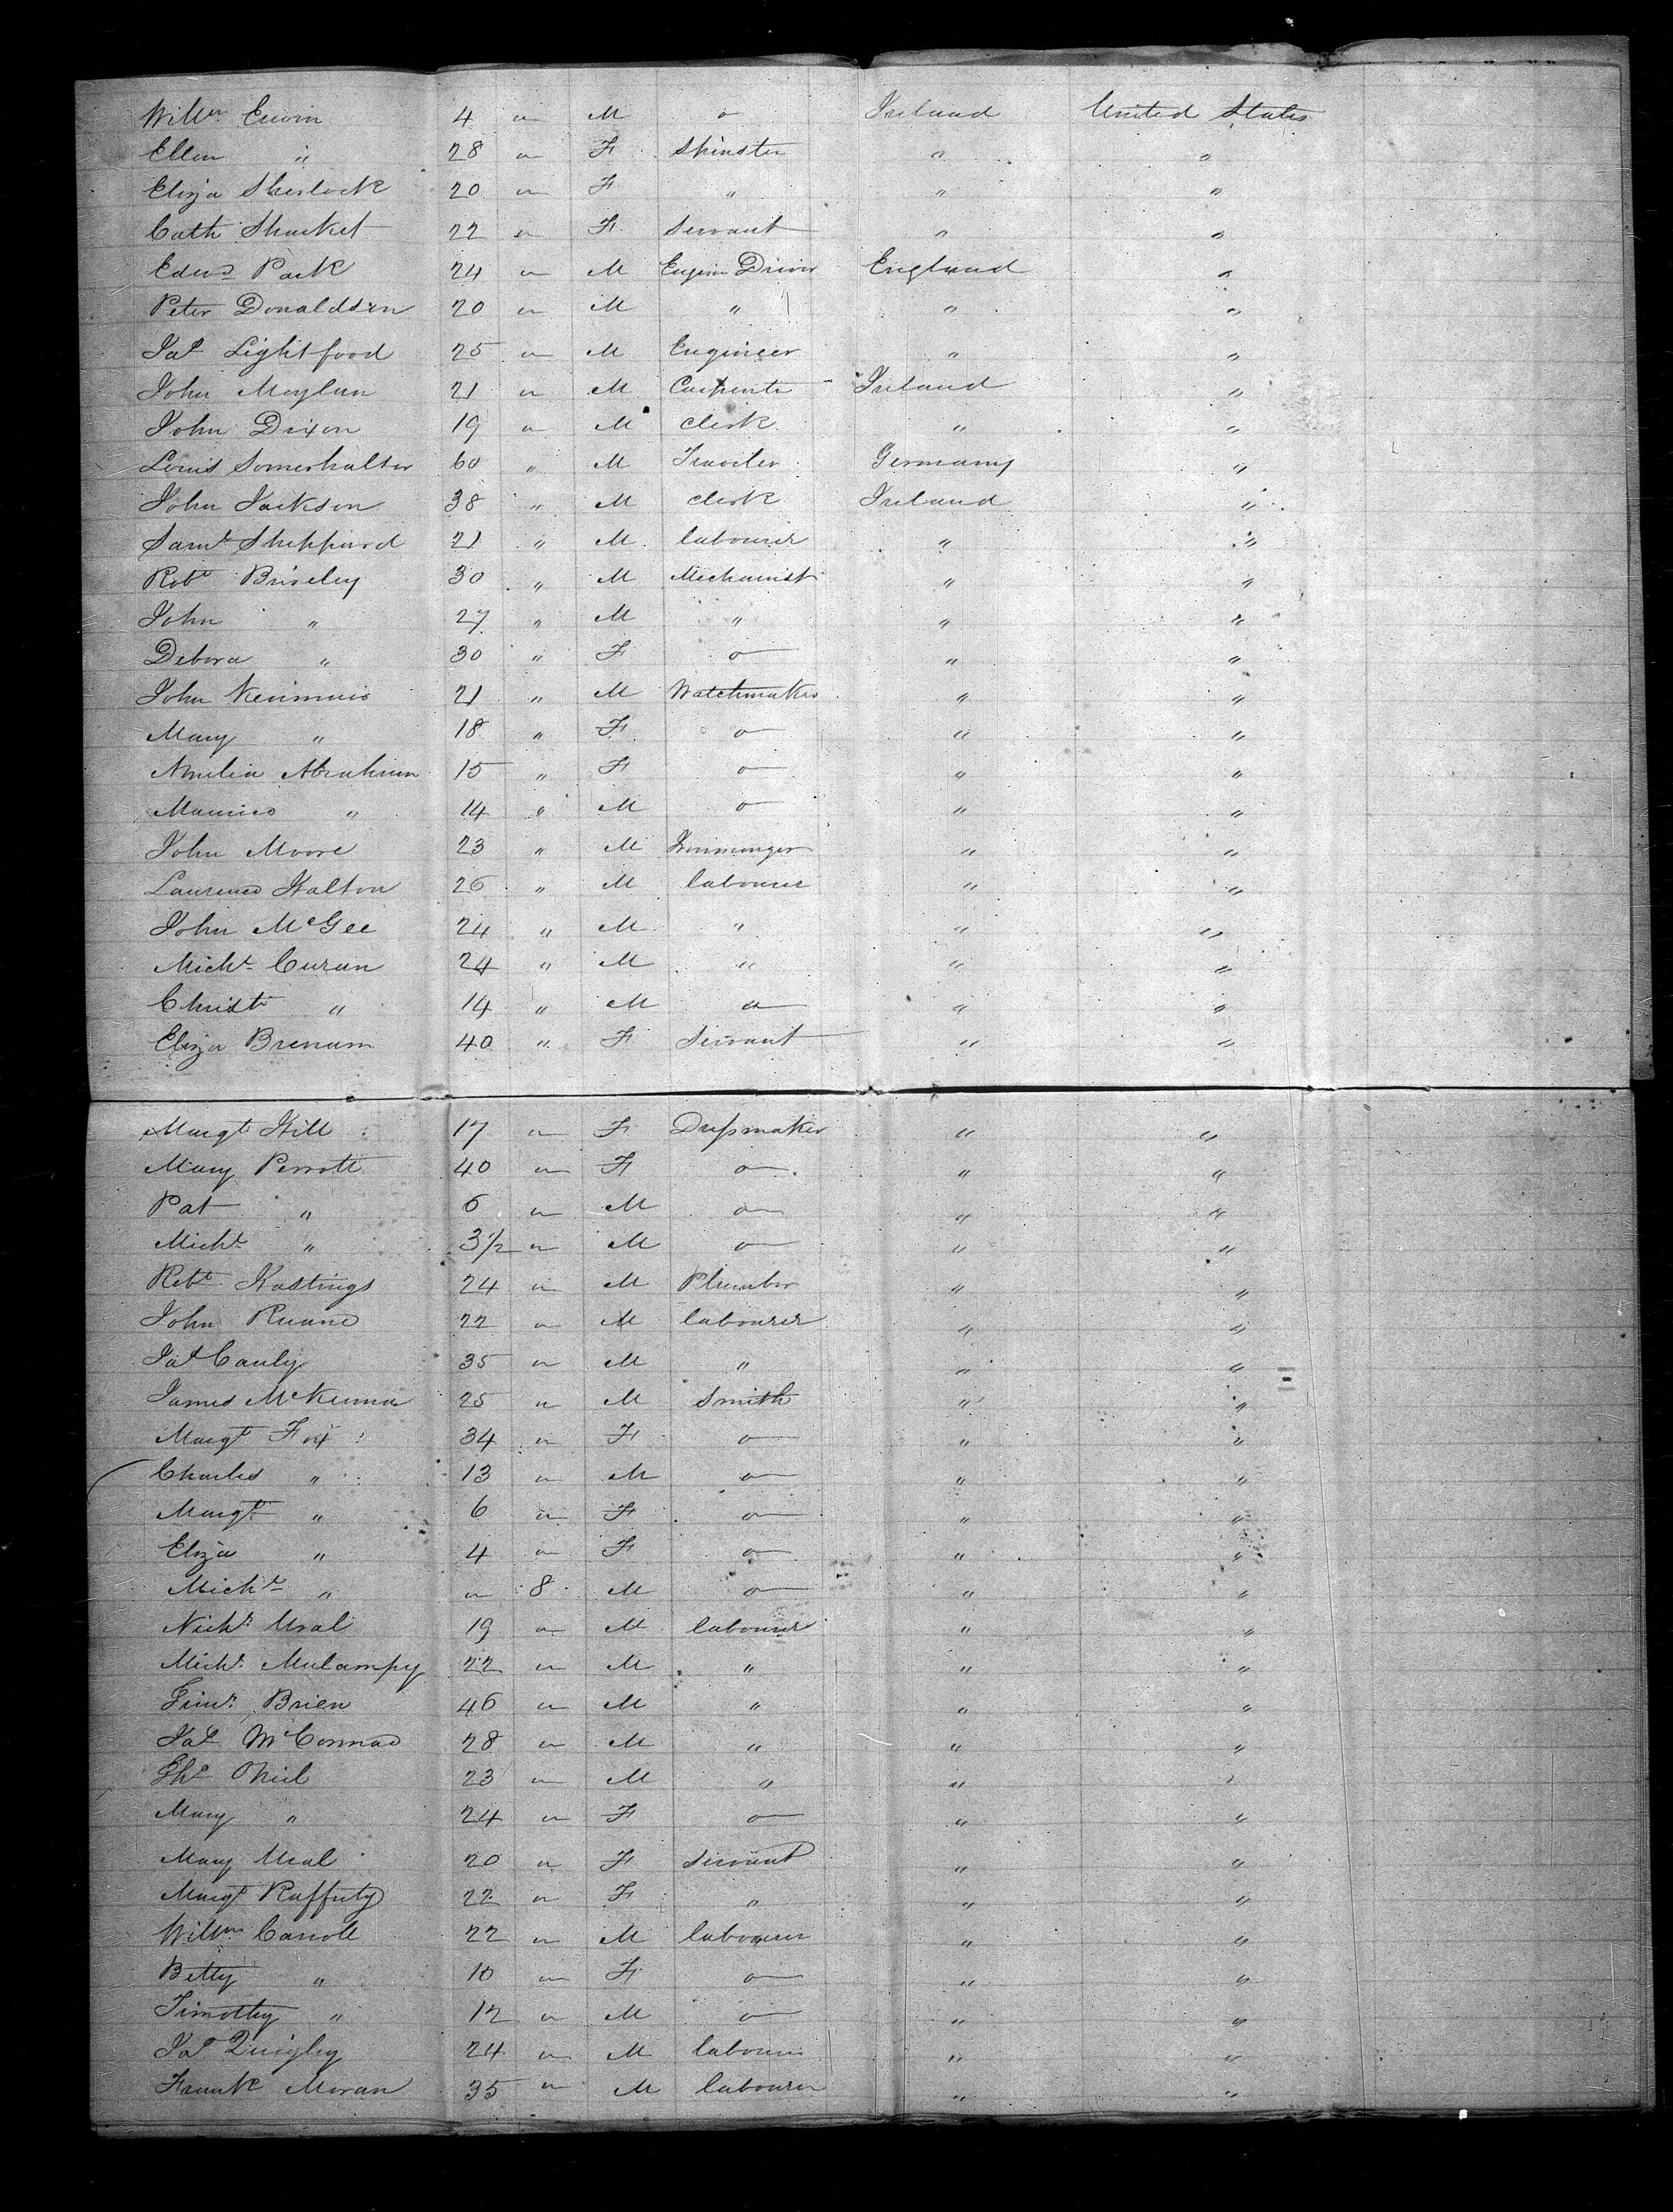 Willm Erwin 4 " M " Ireland United States
Ellen " 28 " F Spinster " "
Eliza Sherlock 20 " F " " "
Cath Shacket 22 " F Servant " "
Edwd Park 24 " M Engine Driver England "
Peter Donaldson 20 " M " " "
Jas Lightfood 25 " M Engineer " "
John Moylan 21 " M Carpenter Ireland "
John Dixon 19 " M Clerk " "
Louis Somerhalter 60 " M Traveler Germany "
John Jackson 38 " M Clerk Ireland "
Saml Sheppard 21 " M labourer " "
Robt Briseley 30 " M Mechanist " "
John " 27 " M " " "
Debora " 30 " F " " "
John Kenmuir 21 " M Watchmaker " "
Mary " 18 " F " " "
Amelia Abraham 15 " F " " "
Maurice " 14 " M " " "
John Moore 23 " M Ironmonger " "
Laurence Halton 26 " M labourer " "
John McGee 24 " M " " "
Michl Curan 24 " M " " "
Christr " 14 " M " " "
Eliza Brenam 40 " F Servant " "
Margt Hill 17 " F Dressmaker " "
Mary Perrott 40 " F " " "
Pat " 6 " M " " "
Michl " 3½ " M " " "
Robt Hastings 24 " M Plumber " "
John Ruane 22 " M labourer " "
Jas Cauly 35 " M " " "
James McKenna 25 " M Smith " "
Margt Fox 34 " F " " "
Charles " 13 " M " " "
Margt " 6 " F " " "
Eliza " 4 " F " " "
Michl " " 8 M " " "
Nichs Mral 19 " M labourer " "
Michl Mulampy 22 " M " " "
Timy Brien 46 " M " " "
Jas McCormac 28 " M " " "
Ths Oneil 23 " M " " "
Mary " 24 " F " " "
Mary Mral 20 " F Servant " "
Margt Raffuty 22 " F " " "
Willm Carroll 22 " M labourer " "
Betty " 10 " F " " "
Timothy " 12 " M " " "
Jas Quigley 24 " M labourer " "
Frank Moran 35 " M labourer " "